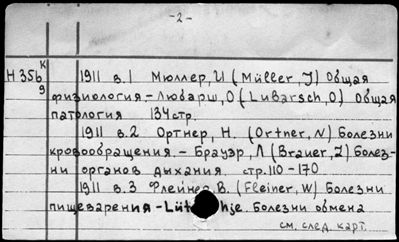 -2-
К
Н356 1911 в.1 Мюллер, И (Müller, J) Общая
9
физиология. - Любарш, О (Lubarsch, O) Общая
патология 134стр.
1911 в.2 Ортнер, Н. (Ortner, N) Болезни
кровообращения. - Брауэр, Л (Brauer, L) Болез-
ни органов дыхания. стр.110-170
1911 в.3 Флейнер, В. (Fleiner, W) Болезни
пищеварения - Болезни обмена
см. след. карт.